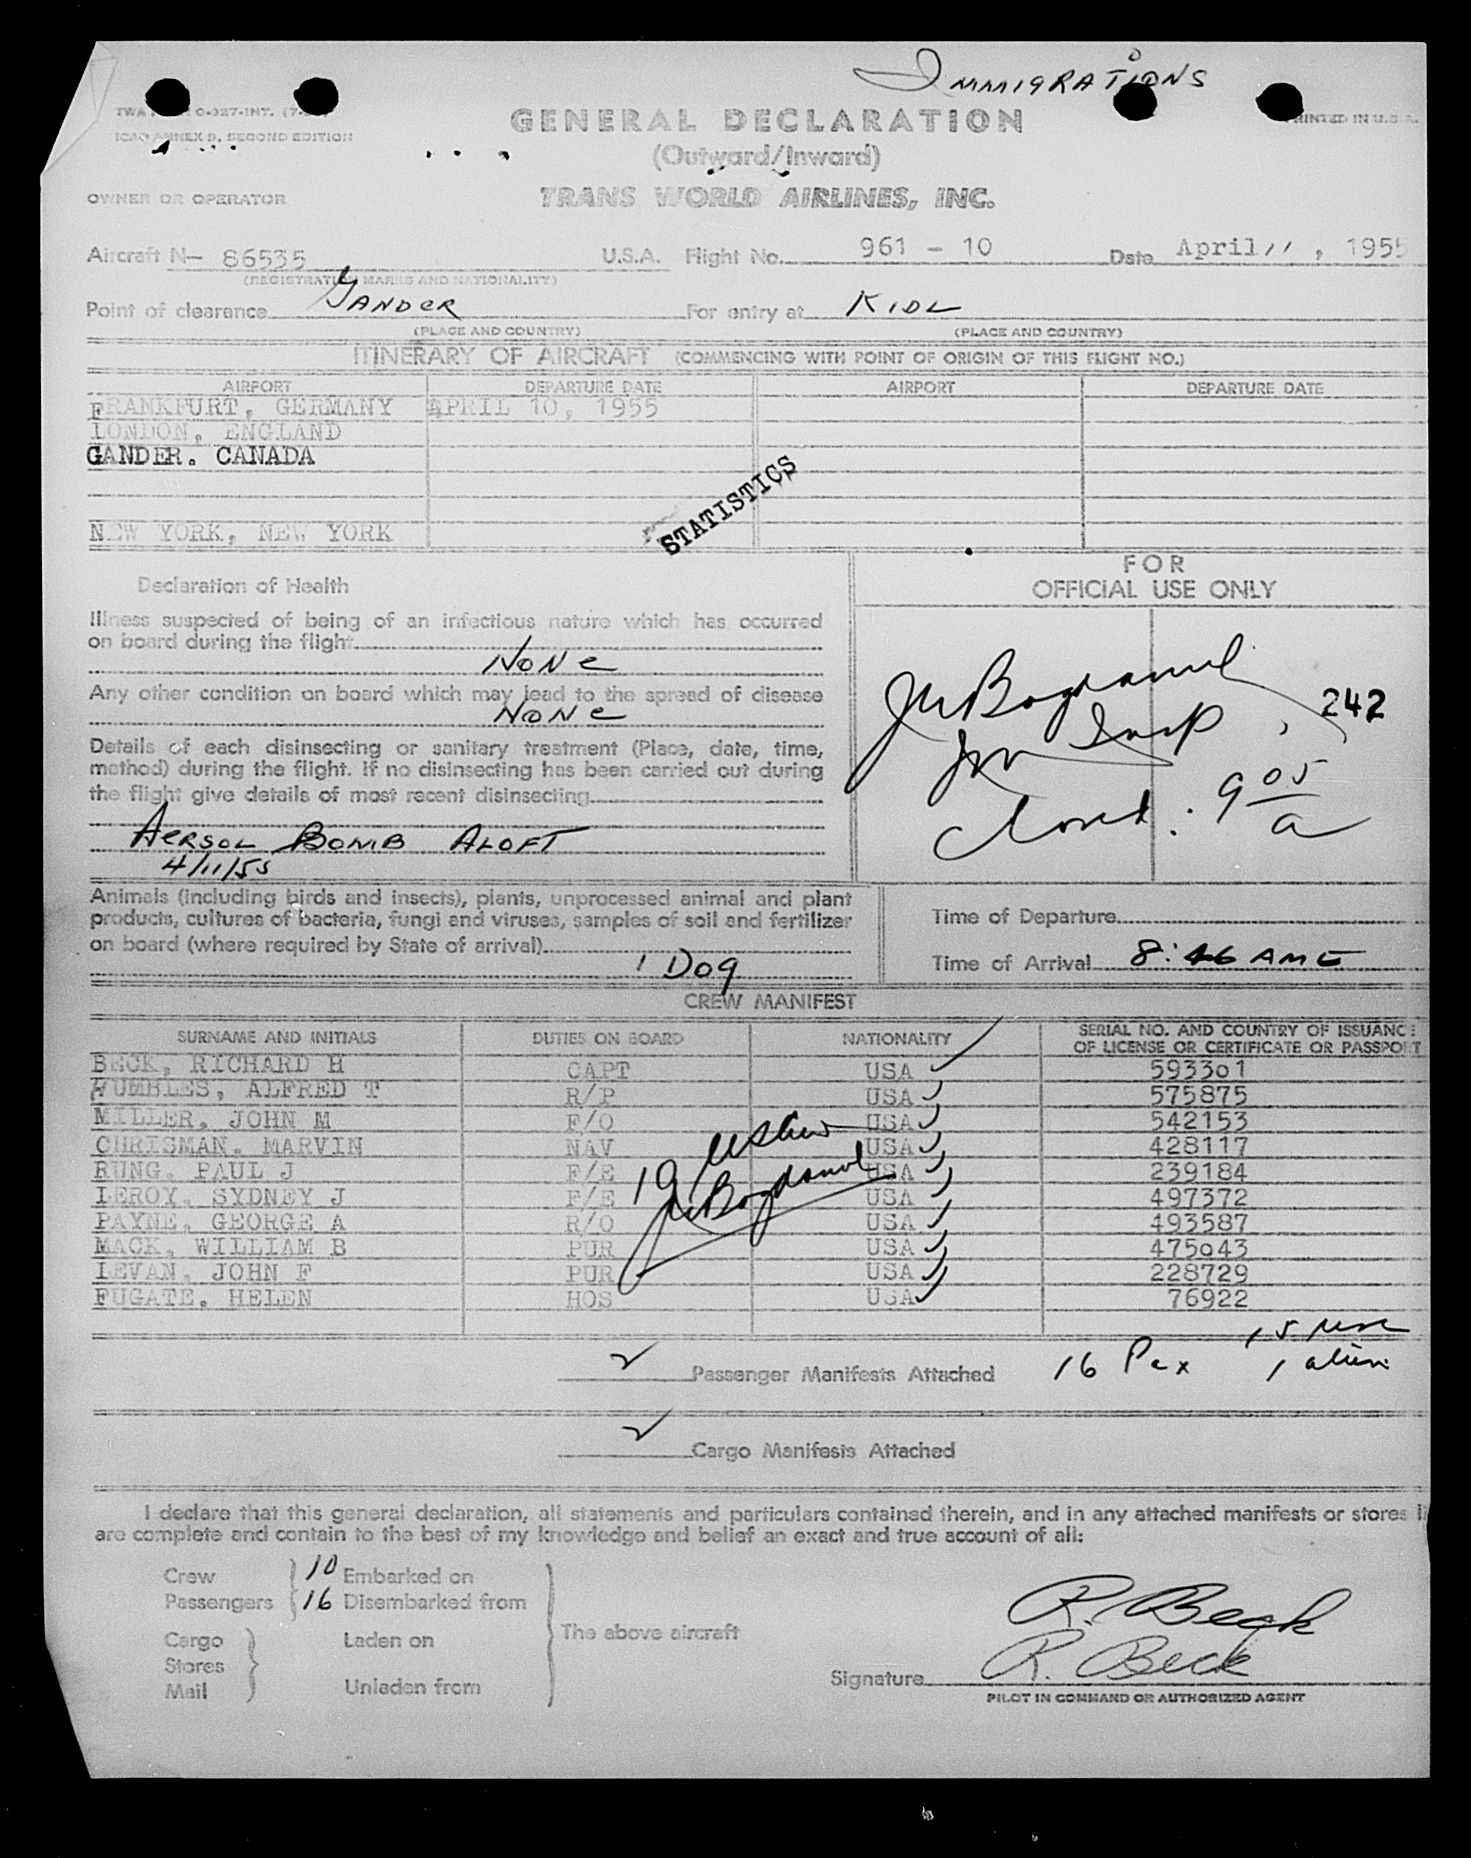 IMMIGRATIONS
GENERAL DECLARATION
ICAO ANNEX 9, SECOND EDITION
PRINTED IN U.S.A.
(Outward/Inward)
OWNER OR OPERATOR TRANS WORLD AIRLINES, INC.
Aircraft N— 86535 U.S.A. Flight No. 961 - 10 Date April 11, 1955
(REGISTRATION MARKS AND NATIONALITY)
Point of clearance Gander For entry at KIDL
(PLACE AND COUNTRY) (PLACE AND COUNTRY)
ITINERARY OF AIRCRAFT (COMMENCING WITH POINT OF ORIGIN OF THIS FLIGHT NO.)
AIRPORT DEPARTURE DATE AIRPORT DEPARTURE DATE
FRANKFURT, GERMANY APRIL 10, 1955
LONDON, ENGLAND
GANDER. CANADA
STATISTICS
NEW YORK, NEW YORK
FOR
OFFICIAL USE ONLY
Declaration of Health
Illness suspected of being of an infectious nature which has occurred
on board during the flight
NONE
Any other condition on board which may lead to the spread of disease
NONE
Details of each disinsecting or sanitary treatment (Place, date, time,
method) during the flight. If no disinsecting has been carried out during
the flight give details of most recent disinsecting
AERSOL BOMB ALOFT
4/11/55
242
Imm Insp
Closed: 9 05 a
Animals (including birds and insects), plants, unprocessed animal and plant
products, cultures of bacteria, fungi and viruses, samples of soil and fertilizer
on board (where required by State of arrival)
1 Dog
Time of Departure
Time of Arrival 8:46 AM E
CREW MANIFEST
SURNAME AND INITIALS DUTIES ON BOARD NATIONALITY SERIAL NO. AND COUNTRY OF ISSUANCE
OF LICENSE OR CERTIFICATE OR PASSPORT
BECK, RICHARD H CAPT USA 593301
HUMBLES, ALFRED T R/P USA 575875
MILLER, JOHN M F/O USA 542153
CHRISMAN, MARVIN NAV USA 428117
RUNG, PAUL J F/E USA 239184
LEROY, SYDNEY J F/E USA 497372
PAYNE, GEORGE A R/O USA 493587
MACK, WILLIAM B PUR USA 475043
LEVAN, JOHN F PUR USA 228729
FUGATE, HELEN HOS USA 76922
10
Passenger Manifests Attached 16 Pax 15
1 alien
Cargo Manifests Attached
I declare that this general declaration, all statements and particulars contained therein, and in any attached manifests or stores
are complete and contain to the best of my knowledge and belief an exact and true account of all:
Crew 10 Embarked on
Passengers 16 Disembarked from
The above aircraft
Cargo Laden on
Stores
Mail Unladen from
R. Beck
Signature R. Beck
PILOT IN COMMAND OR AUTHORIZED AGENT